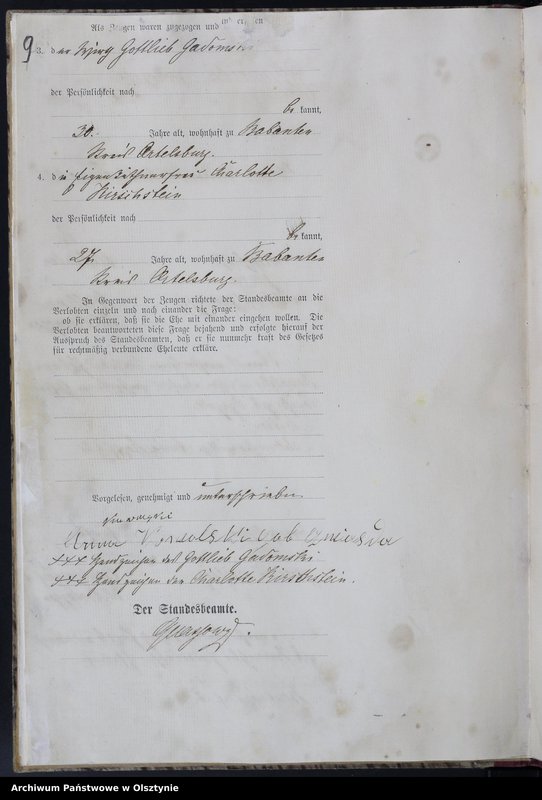 9
Als Zeugen waren zugezogen und erschienen
3. der Wirth Gottlieb Gadomski
der Persönlichkeit nach
be kannt,
30 Jahre alt, wohnhaft zu Babanten
Kreis Ortelsburg.
4. die Eigenkäthnerfrau Charlotte
Kirschstein
der Persönlichkeit nach
be kannt,
27 Jahre alt, wohnhaft zu Babanten
Kreis Ortelsburg.
In Gegenwart der Zeugen richtete der Standesbeamte an die
Verlobten einzeln und nach einander die Frage:
ob sie erklären, daß sie die Ehe mit einander eingehen wollen. Die
Verlobten beantworteten diese Frage bejahend und erfolgte hierauf der
Ausspruch des Standesbeamten, daß er sie nunmehr kraft des Gesetzes
für rechtmäßig verbundene Eheleute erkläre.
Vorgelesen, genehmigt und unterschrieben
Anna gob
+++ Handzeichen des Gottlieb Gadomski
+++ Handzeichen der Charlotte Kirschstein.
Der Standesbeamte.
Archiwum Państwowe w Olsztynie